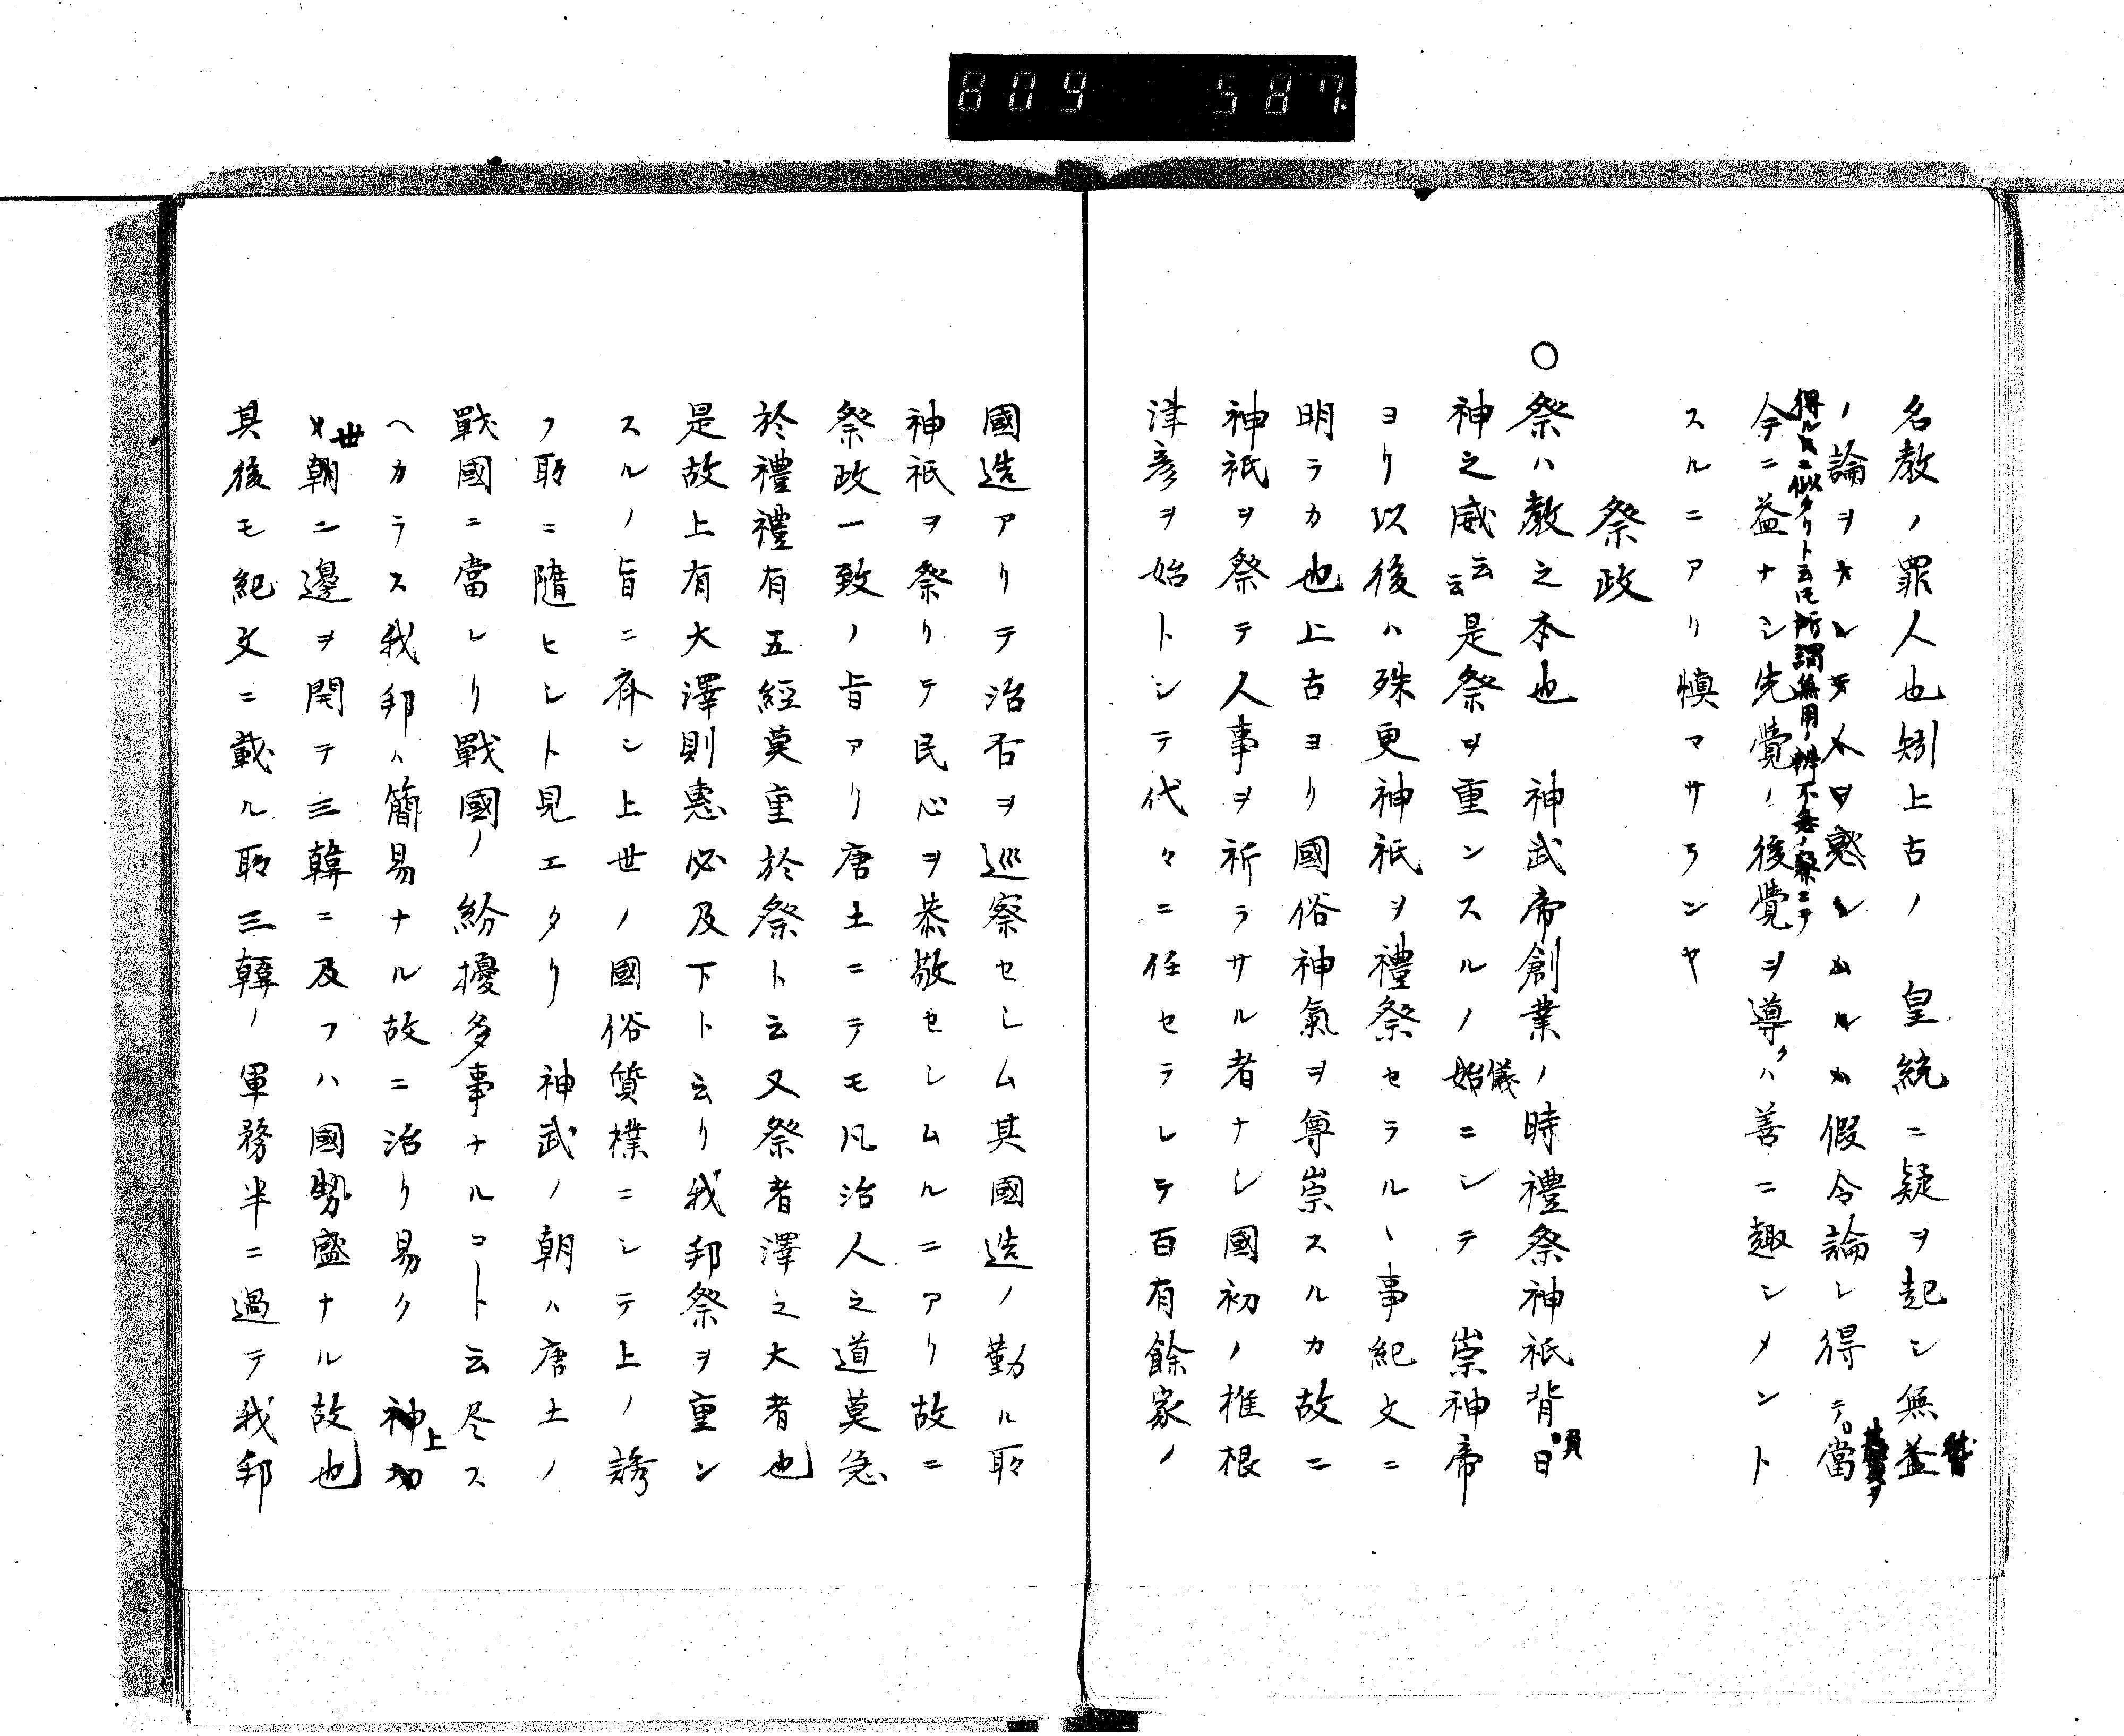 809 587.
名教ノ罪人也矧上古ノ 皇統ニ疑ヲ起シ無益
ノ論ヲ 人ヲ惑 假令論シ得テ當
得ルニ似タリト云ㇳモ所謂無用ノ辨不急ノ察ニテ
今ニ益ナシ先覺ノ後覺ヲ導クハ善ニ趣シメント
スルニアリ慎マサランヤ
祭政
○祭ハ教之本也 神武帝創業ノ時禮祭神祇背日
神之威云云是祭ヲ重ンスルノ始儀ニシテ 崇神帝
ヨリ以後ハ殊更神祇ヲ禮祭セラルヽ事紀文ニ
明ラカ也上古ヨリ國俗神氣ヲ尊崇スルカ故ニ
神祇ヲ祭テ人事ヲ祈ラサル者ナシ國初ノ推根
津彦ヲ始トシテ代々ニ任セラレテ百有餘家ノ
國造アリテ治否ヲ巡察セシム其國造ノ勤ル所
神祇ヲ祭リテ民心ヲ恭敬セシムルニアリ故ニ
祭政一致ノ旨アリ唐土ニテモ凡治人之道莫急
於禮禮有五經莫重於祭ト云又祭者澤之大者也
是故上有大澤則惠必及下ト云リ我邦祭ヲ重ン
スルノ旨ニ齊シ上世ノ國俗質樸ニシテ上ノ誘
フ所ニ隨ヒシト見エタリ 神武ノ朝ハ唐土ノ
戰國ニ當レリ戰國ノ紛擾多事ナルコト云尽ス
ヘカラス我邦ハ簡易ナル故ニ治リ易ク 神功上
世朝ニ邊ヲ開テ三韓ニ及フハ國勢盛ナル故也
其後モ紀文ニ載ル所三韓ノ軍務半ニ過テ我邦